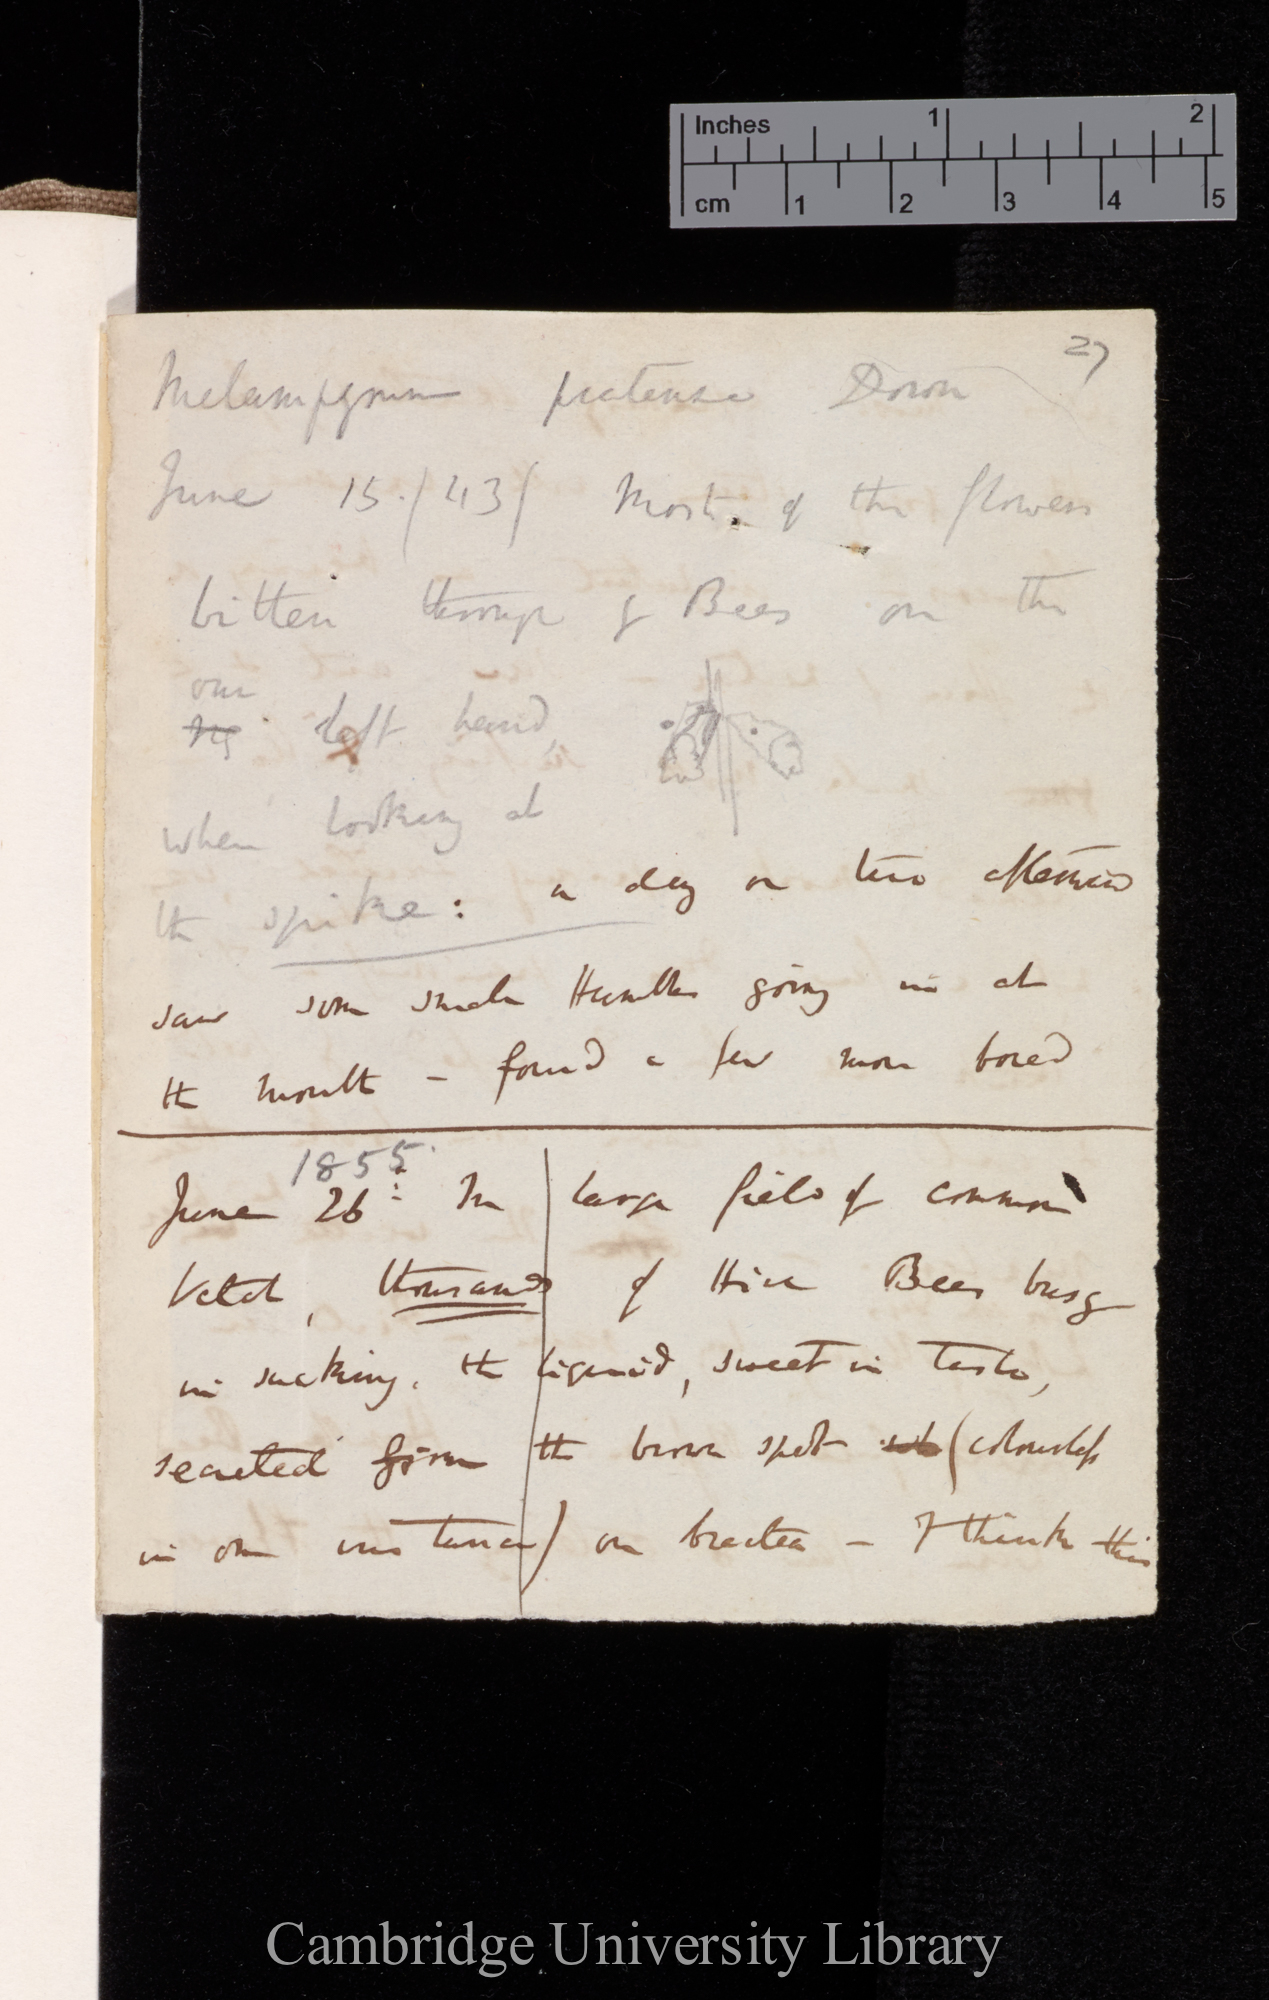 Inches 1 2
cm 1 2 3 4 5
27
Melampyrum pratense Down
June 15./43/ Most of the flowers
bitten through by Bees on the
our
left hand,
when looking at
the spike: a day or two afterward
saw some small Humbles going in at
the mouth – found a few more bored
1855.
June 26: In large field of common
Vetch, thousands of Hive Bees busy
in sucking, the liquid, sweet in taste,
secreted from the brown spot (colourless
in one instance) on bractea – I think this
Cambridge University Library